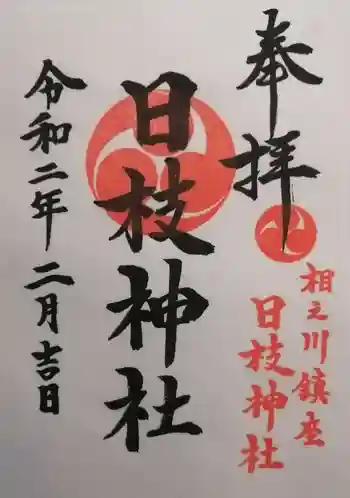 奉拝
相之川鎮座
日枝神社
日枝神社
令和二年二月吉日